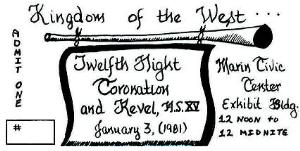 Kingdom of the West ...
ADMIT ONE
Twelfth Night
Coronation
and Revel, A.S. XV
January 3, (1981)
Marin Civic
Center
Exhibit Bldg.
12 NOON TO
12 MIDNITE
#